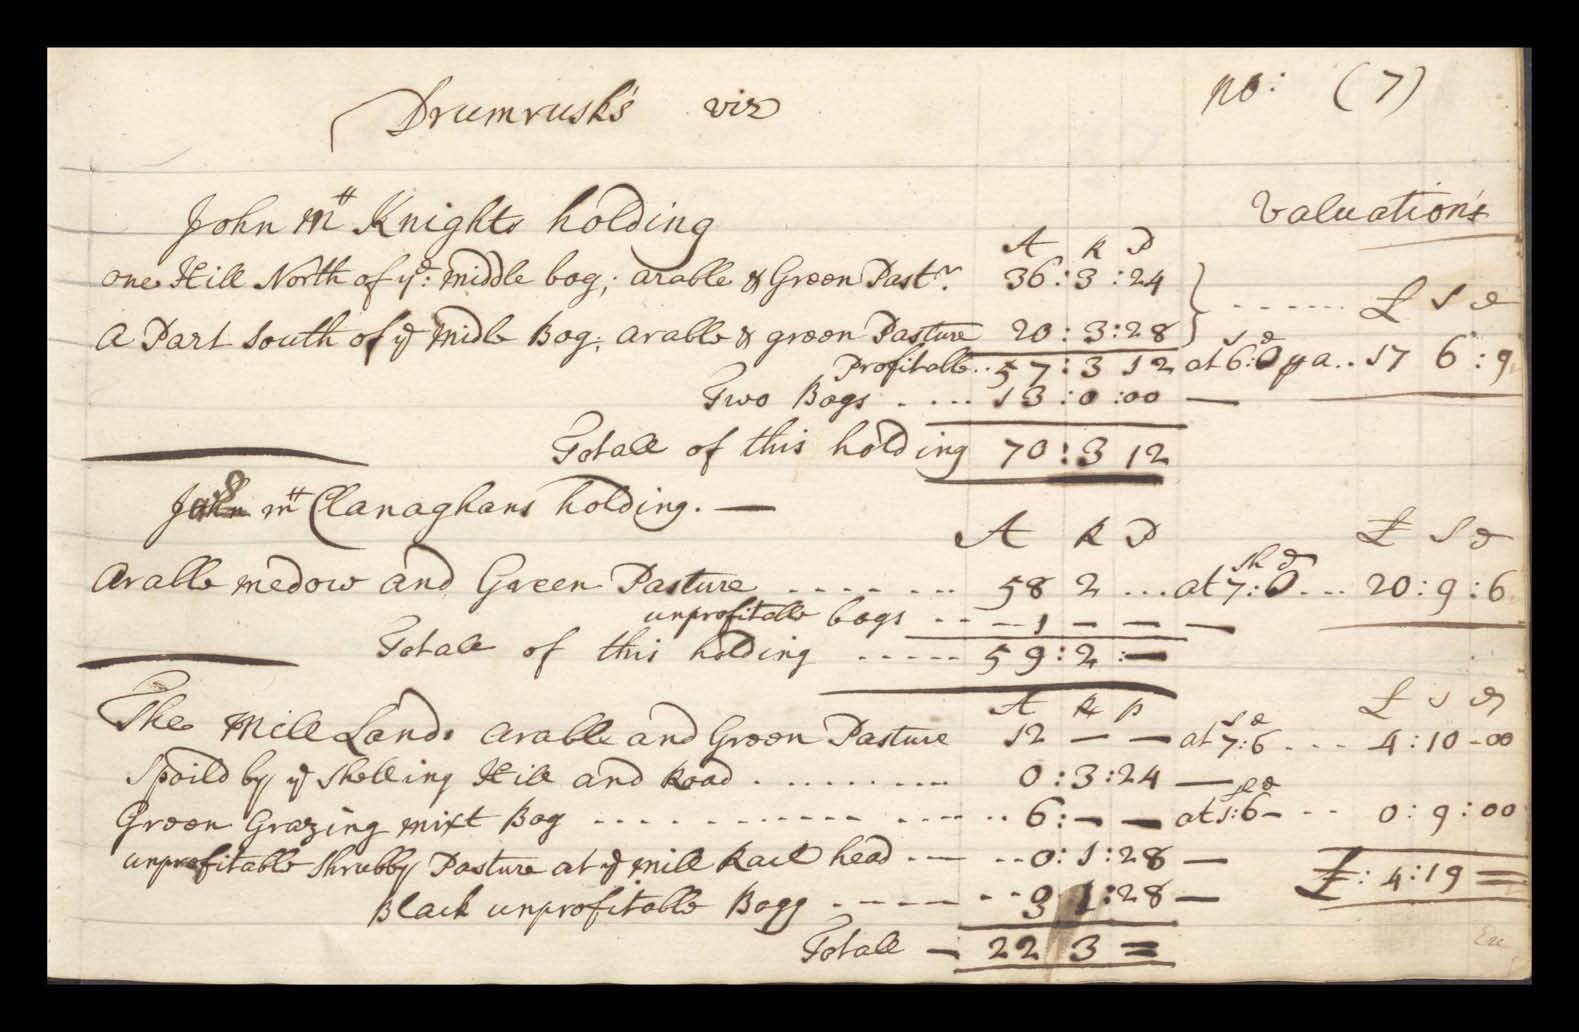 Drumrusk's viz no: (7)
John Mtt Knights holding Valuation's
A R P
one Hill North of ye: middle bog; arable & Green Pastr. 36:3:24
£ s d
a Part South of ye midle Bog; arable & green Pasture 20:3:28
s d
Profitable.. 57:3 12 at 6:0 pr a.. 17 6:9
Two Bogs .... 13:0:00 —
Totall of this holding 70:3 12
mtt Clanaghans holding. —
A R P £ s d
sh d
arable medow and Green Pasture ....... 58 2 ... at 7:0... 20:9:6
unprofitable bogs - - - 1 — — —
Totall of this holding ..... 59:2:—
A R P £ s d
s d
The Mill Land. arable and Green Pasture 12 — — at 7:6 .... 4:10-00
Spoild by ye Shelling Hill and Road .......... 0:3:24 —
s d
Green Grazing mixt Bog .... ......... ...... 6:— — at 1:6- - - 0:9:00
unprofitable Shrubby Pasture at ye mill Race head -— --0:1:28 — £:4:19 =
Black unprofitable Bogg - - - - — - - 3 1:28 —
Totall — 22 3 =